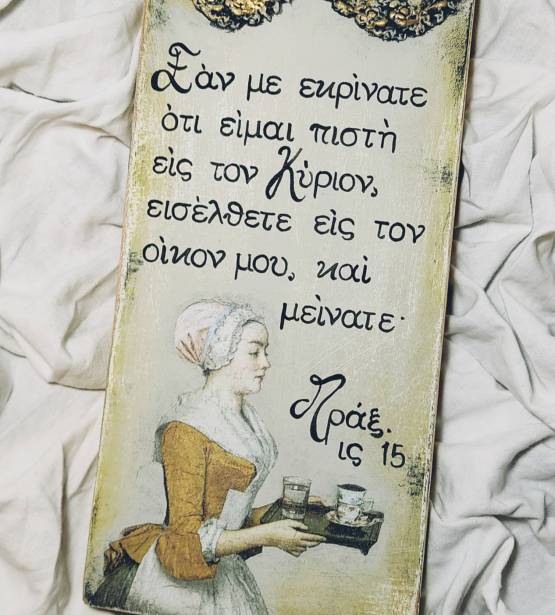 Ἐὰν με εκρὶνατε
ὁτι εἰμαι πιστὴ
εἰς τον Κὺριον,
εισὲλθετε εἰς τον
οἰκον μου, καὶ
μεὶνατε·
Πράξ.
ις 15